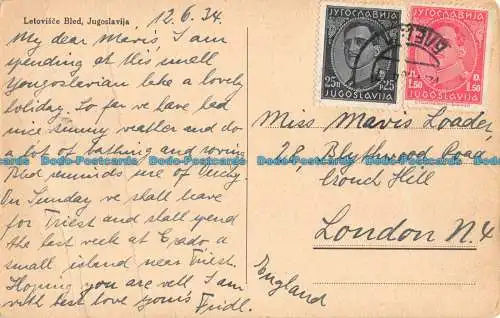 Letovišče Bled, Jugoslavija
12.6.34.
My dear Mavis, I am
spending at this small
Yougoslavian lake a lovely
holiday. So far we have had
nice sunny weather and do
a lot of bathing and rowing
Bled reminds me of
On Sunday we shall leave
for Triest and shall spend
the last week at Grado a
small island near Triest.
Hoping you are well I am
with best love yours Fridl.
ЈУГОСЛАВИЈА
25п P25
JUGOSLAVIJA
ЈУГОСЛАВИЈА
Д. D.
1.50 1.50
JUGOSLAVIJA
BLED
Miss Mavis Loader
28, Blythwood Road
Crouch Hill
London N.4
England
Dodo-Postcards Dodo-Postcards Dodo-Postcards Dodo-Postcards